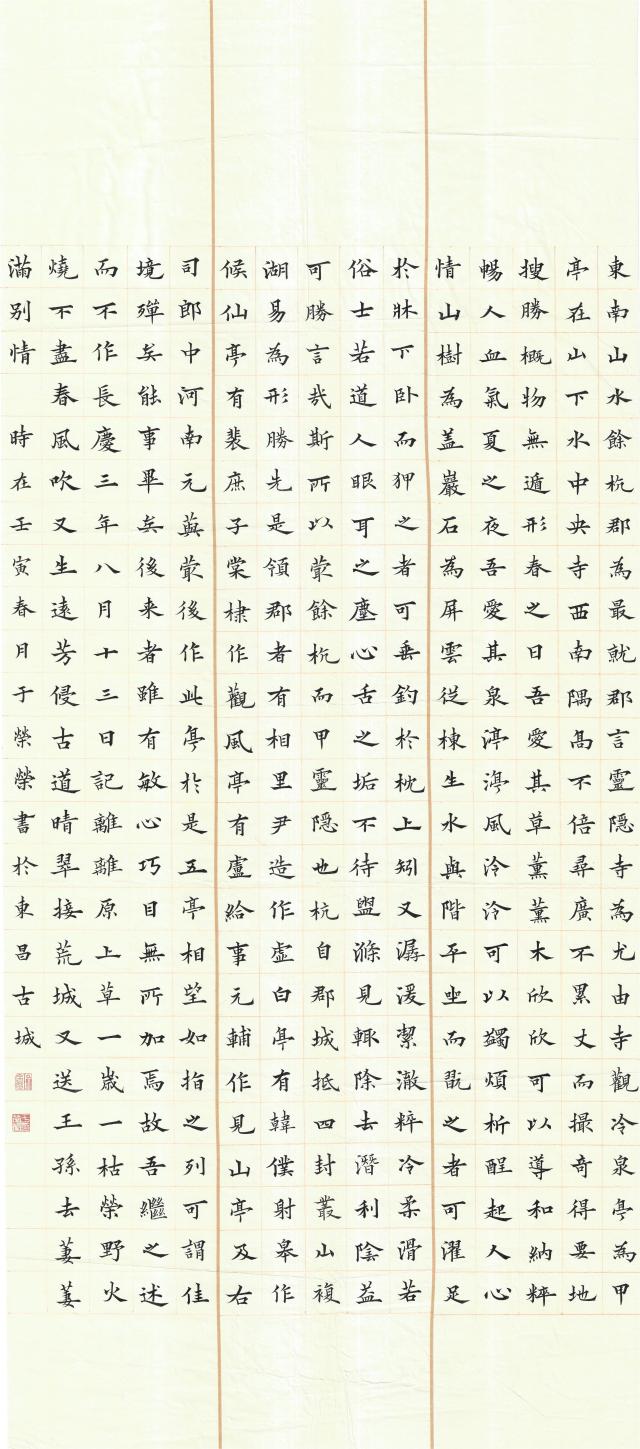 東南山水餘杭郡為最就郡言靈隱寺為尤由寺觀冷泉亭為甲
亭在山下水中央寺西南隅高不倍尋廣不累丈而撮奇得要地
搜勝概物無遁形春之日吾愛其草薰薰木欣欣可以導和納粹
暢人血氣夏之夜吾愛其泉渟渟風泠泠可以蠲煩析酲起人心
情山樹為蓋巖石為屏雲從棟生水與階平坐而翫之者可濯足
於牀下卧而狎之者可垂釣於枕上矧又潺湲潔澈粹冷柔滑若
俗士若道人眼耳之塵心舌之垢不待盥滌見輒除去潛利陰益
可勝言哉斯所以冣餘杭而甲靈隱也杭自郡城抵四封叢山複
湖易為形勝先是領郡者有相里尹造作虛白亭有韓僕射皋作
候仙亭有裴庶子棠棣作觀風亭有盧給事元輔作見山亭及右
司郎中河南元藇冣後作此亭於是五亭相望如指之列可謂佳
境殫矣能事畢矣後来者雖有敏心巧目無所加焉故吾繼之述
而不作長慶三年八月十三日記離離原上草一歲一枯榮野火
燒不盡春風吹又生遠芳侵古道晴翠接荒城又送王孫去萋萋
滿別情 時在壬寅春月于榮榮書於東昌古城